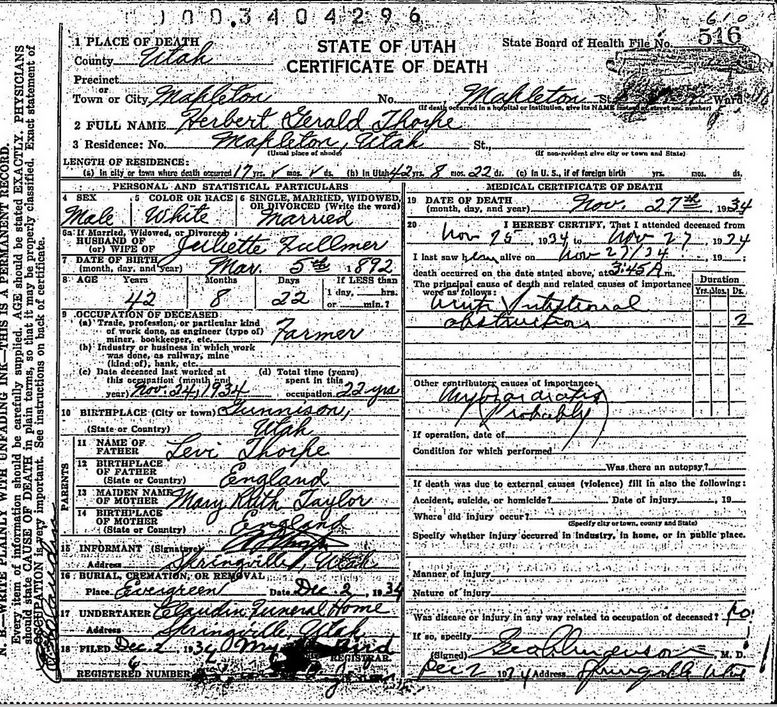 1 0 0 3 4 0 4 2 9 6
610
STATE OF UTAH
CERTIFICATE OF DEATH
State Board of Health File No. 516
1 PLACE OF DEATH
County Utah
Precinct
or
Town or City Mapleton No. Mapleton St. Ward
(If death occurred in a hospital or institution, give its NAME instead of street and number)
2 FULL NAME Herbert Gerald Thorpe
3 Residence: No. Mapleton, Utah St.,
(Usual place of abode) (If non-resident give city or town and State)
LENGTH OF RESIDENCE:
(a) In city or town where death occurred 17 yrs. mos. ds. (b) In Utah 42 yrs. 8 mos. 22 ds. (c) In U. S., if of foreign birth yrs. mos. ds.
PERSONAL AND STATISTICAL PARTICULARS
4 SEX
Male
5 COLOR OR RACE
White
6 SINGLE, MARRIED, WIDOWED,
OR DIVORCED (Write the word)
Married
6a If Married, Widowed, or Divorced
HUSBAND OF
(or) WIFE OF Juliette Fullmer
7 DATE OF BIRTH
(month, day, and year) Mar. 5th 1892
8 AGE Years Months Days If LESS than
1 day, hrs.
or min.?
42 8 22
9 OCCUPATION OF DECEASED:
(a) Trade, profession, or particular kind
of work done, as engineer (type of)
miner, bookkeeper, etc. Farmer
(b) Industry or business in which work
was done, as railway, mine
(kind of), bank, etc.
(c) Date deceased last worked at
this occupation (month and
year) Nov. 24, 1934
(d) Total time (years)
spent in this
occupation 22 yrs
10 BIRTHPLACE (City or town) Gunnison,
(State or Country) Utah
PARENTS
11 NAME OF
FATHER Levi Thorpe
12 BIRTHPLACE
OF FATHER
(State or Country) England
13 MAIDEN NAME
OF MOTHER Mary Ruth Taylor
14 BIRTHPLACE
OF MOTHER
(State or Country) England
15 INFORMANT (Signature)
Address Springville, Utah
16 BURIAL, CREMATION, OR REMOVAL
Place Evergreen Date Dec 2, 1934
17 UNDERTAKER Claudin Funeral Home
Address Springville Utah
18 FILED Dec 2 1934
REGISTRAR.
REGISTERED NUMBER 6
MEDICAL CERTIFICATE OF DEATH
19 DATE OF DEATH
(month, day, and year) Nov. 27th 1934
20 I HEREBY CERTIFY, That I attended deceased from
Nov 25 1934 to Nov 27 1934
I last saw him alive on Nov 27/34 19
death occurred on the date stated above, at 3:45 A m.
The principal cause of death and related causes of importance
were as follows:
Duration
Yrs. Mos. Ds.
Acute Intestinal
obstruction 2
Other contributory causes of importance:
Myocarditis
(Probably)
If operation, date of
Condition for which performed
Was there an autopsy?
If death was due to external causes (violence) fill in also the following:
Accident, suicide, or homicide? Date of injury 19
Where did injury occur?
(Specify city or town, county and State)
Specify whether injury occurred in industry, in home, or in public place.
Manner of injury
Nature of injury
Was disease or injury in any way related to occupation of deceased? No
If so, specify
(Signed) M. D.
Dec 2 1934 Address Springville Utah
N. B.—WRITE PLAINLY WITH UNFADING INK—THIS IS A PERMANENT RECORD.
Every item of information should be carefully supplied. AGE should be stated EXACTLY. PHYSICIANS
should state CAUSE OF DEATH in plain terms, so that it may be properly classified. Exact statement of
OCCUPATION is very important. See instructions on back of certificate.